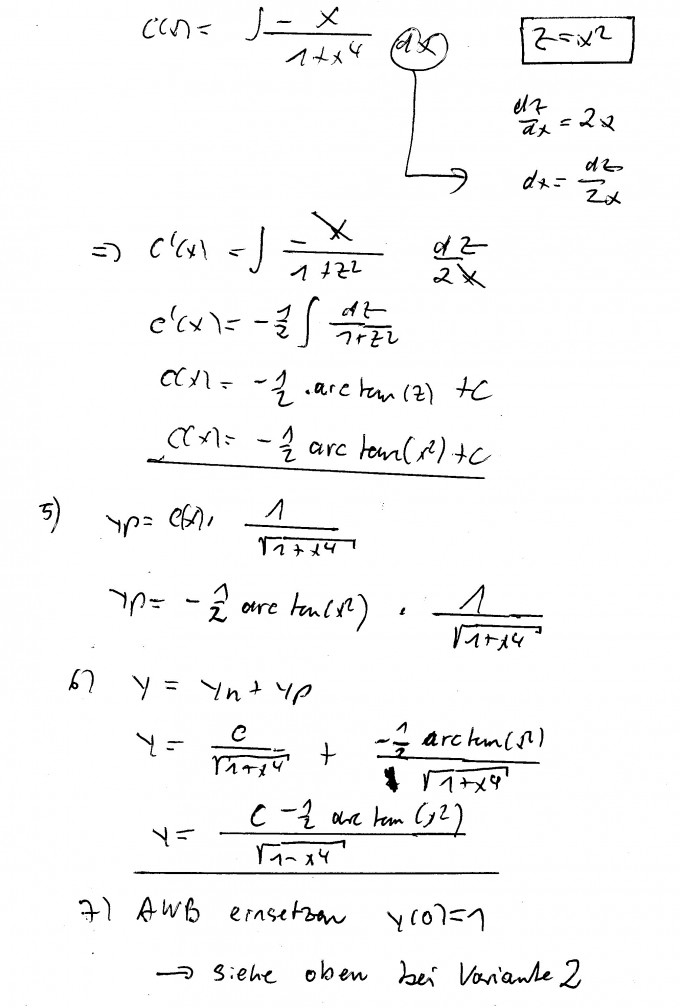 C(x) = ∫ - x / (1+x⁴) dx
z = x²
dz/dx = 2x
dx = dz/2x
=> C'(x) = ∫ - x / (1+z²) dz/2x
C'(x) = - 1/2 ∫ dz / (1+z²)
C(x) = - 1/2 · arc tan (z) + C
C(x) = - 1/2 arc tan (x²) + C
5) yp = C(x) · 1/√(1+x⁴)
yp = - 1/2 arc tan (x²) · 1/√(1+x⁴)
6) y = yh + yp
y = C/√(1+x⁴) + - 1/2 arc tan (x²) / √(1+x⁴)
y = C - 1/2 arc tan (x²) / √(1+x⁴)
7) AWB einsetzen y(0)=1
→ siehe oben bei Variante 2